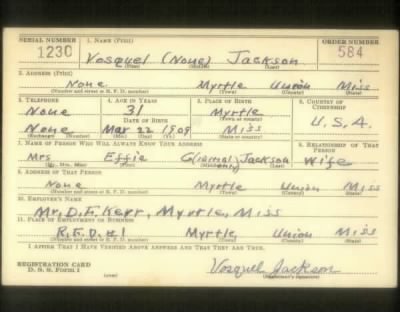 SERIAL NUMBER 1. NAME (Print) ORDER NUMBER
1230 Vosquel (None) Jackson 584
(First) (Middle) (Last)
2. ADDRESS (Print)
None Myrtle Union Miss
(Number and street or R. F. D. number) (Town) (County) (State)
3. TELEPHONE 4. AGE IN YEARS 5. PLACE OF BIRTH 6. COUNTRY OF CITIZENSHIP
None 31 Myrtle
DATE OF BIRTH (Town or county)
None Mar 22 1909 Miss U.S.A.
(Exchange) (Number) (Mo.) (Day) (Yr.) (State or country)
7. NAME OF PERSON WHO WILL ALWAYS KNOW YOUR ADDRESS 8. RELATIONSHIP OF THAT PERSON
Mrs Effie Jackson Wife
(Mr., Mrs., Miss) (First) (Last)
9. ADDRESS OF THAT PERSON
None Myrtle Union Miss
(Number and street or R. F. D. number) (Town) (County) (State)
10. EMPLOYER'S NAME
Mr. D. F. Kerr, Myrtle, Miss
11. PLACE OF EMPLOYMENT OR BUSINESS
R.F.D. #1 Myrtle Union Miss
(Number and street or R. F. D. number) (Town) (County) (State)
I AFFIRM THAT I HAVE VERIFIED ABOVE ANSWERS AND THAT THEY ARE TRUE.
REGISTRATION CARD
D. S. S. Form 1 Vosquel Jackson
(over) (Registrant's signature)